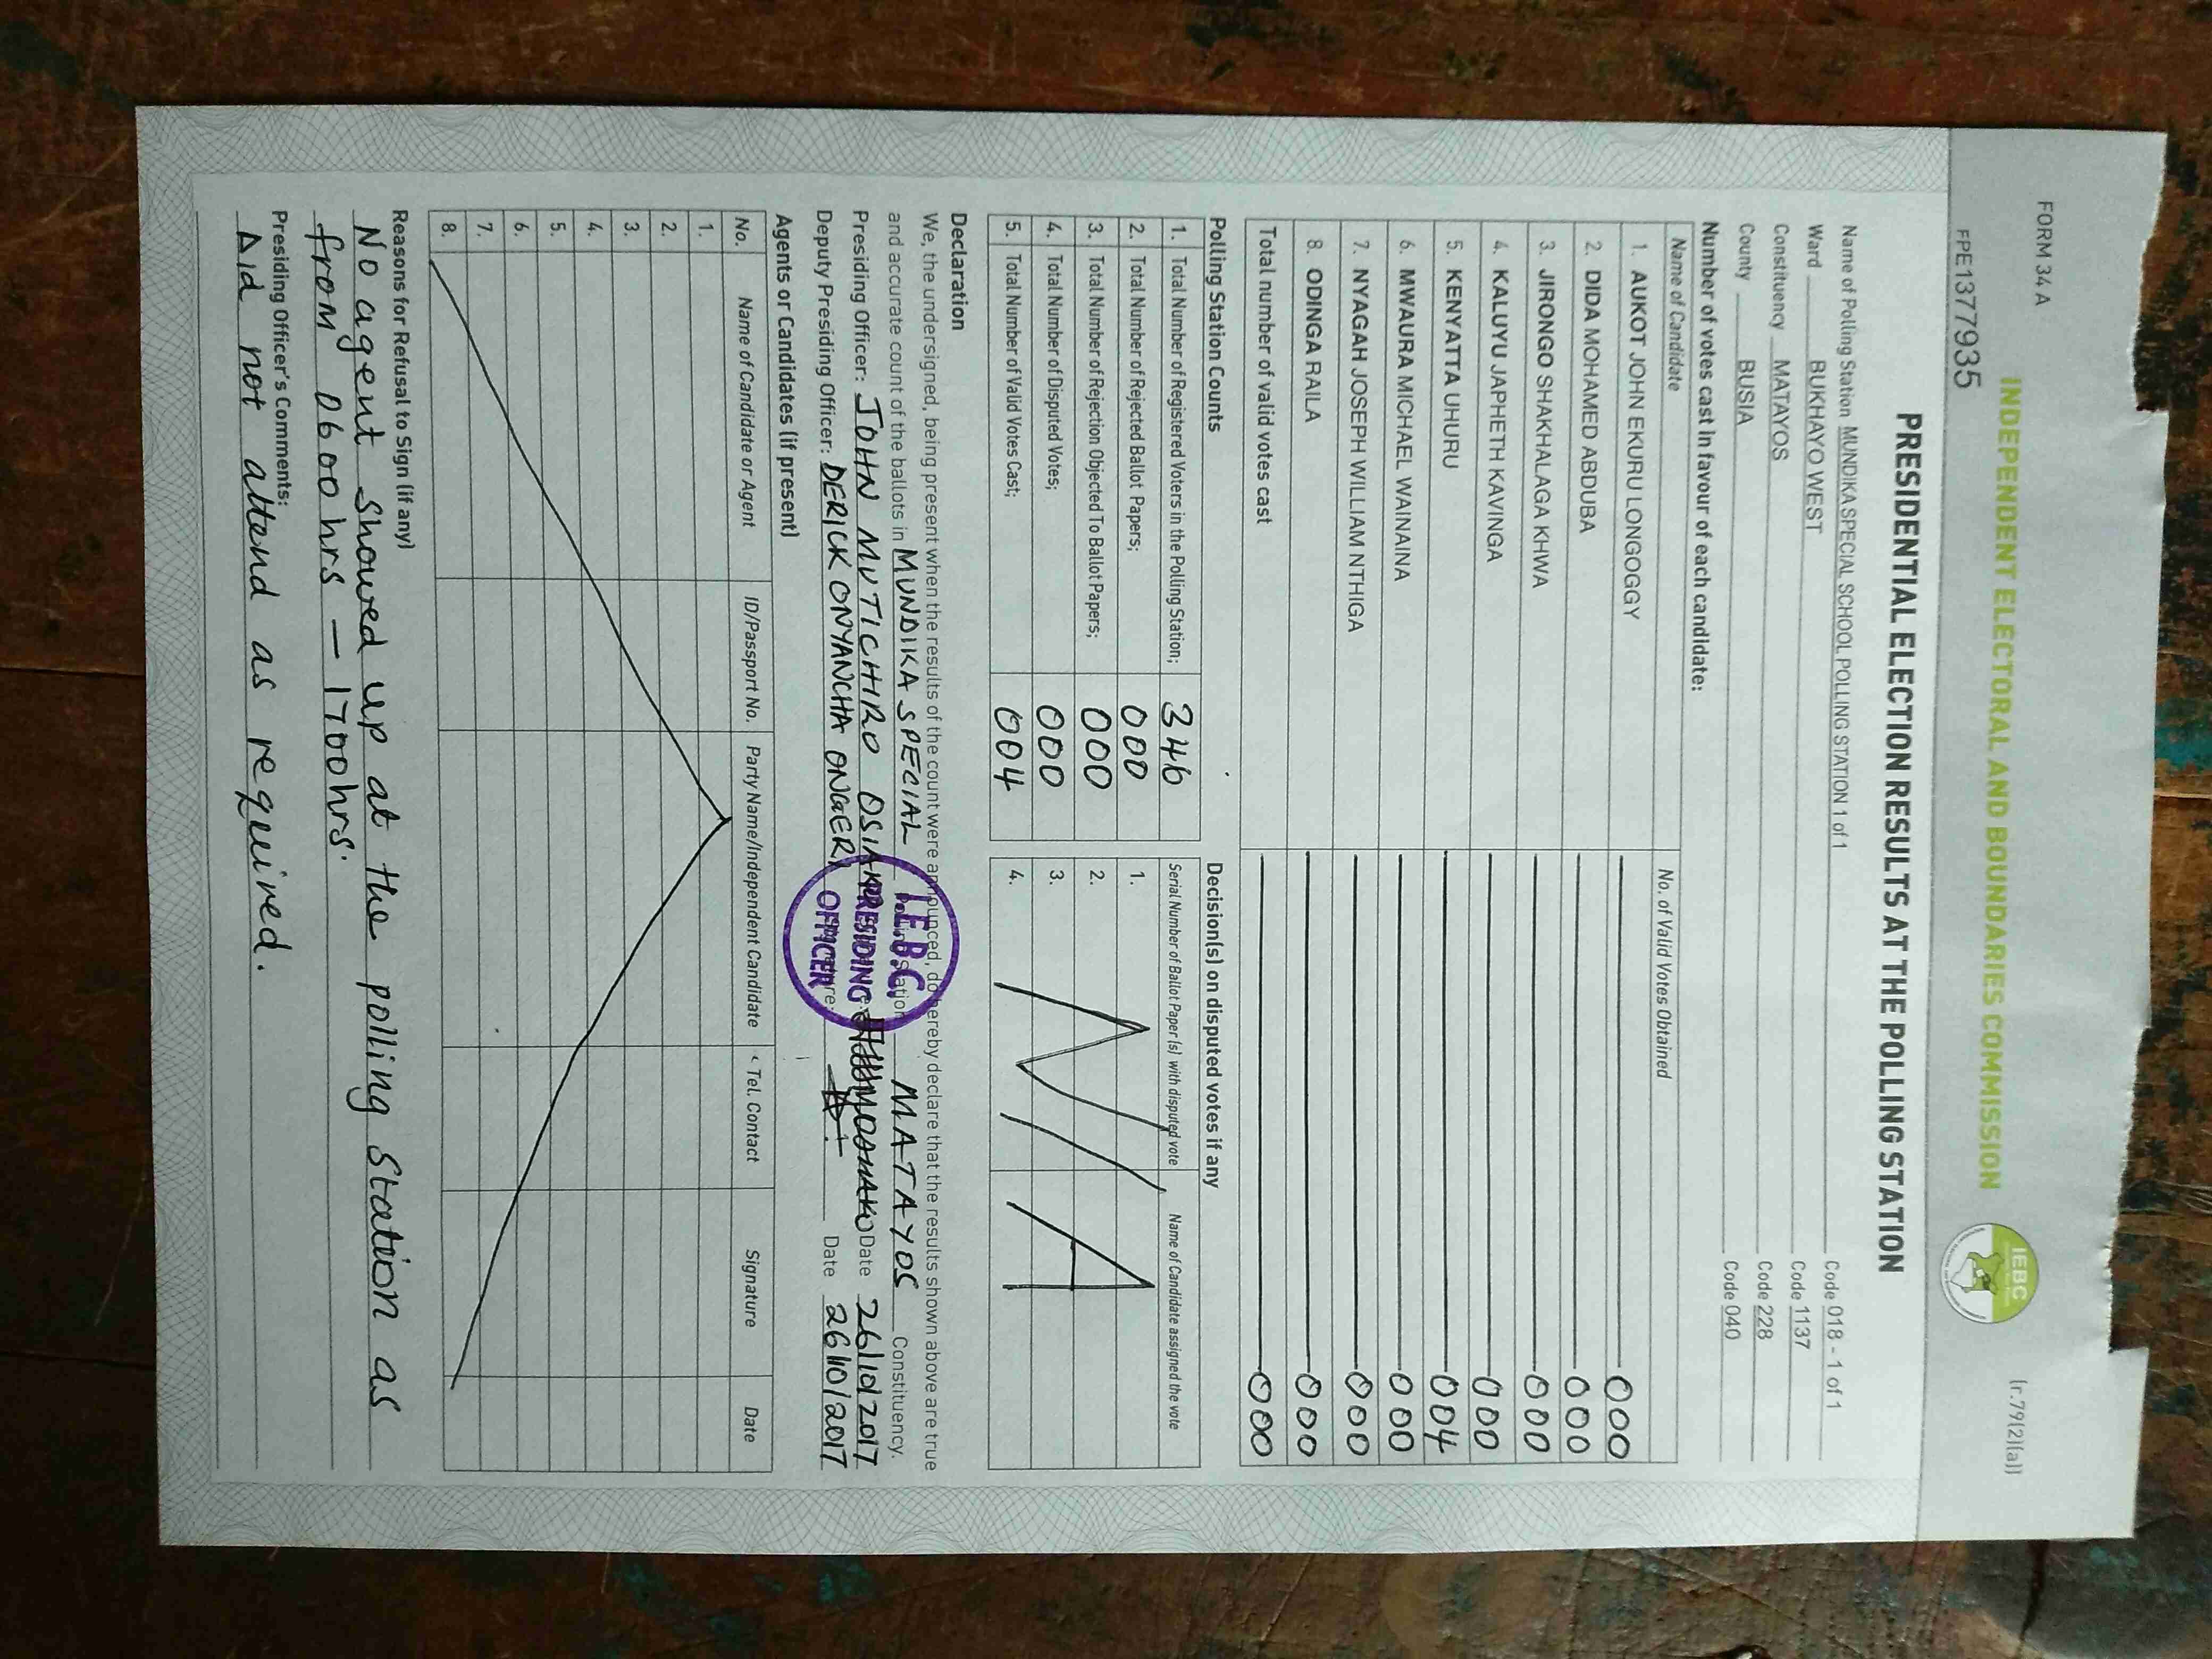 FORM 34 A
(r.79(2)(a))
INDEPENDENT ELECTORAL AND BOUNDARIES COMMISSION
IEBC
FPE1377935
PRESIDENTIAL ELECTION RESULTS AT THE POLLING STATION
Name of Polling Station MUNDIKA SPECIAL SCHOOL POLLING STATION 1 of 1 Code 018 - 1 of 1
Ward BUKHAYO WEST Code 1137
Constituency MATAYOS Code 228
County BUSIA Code 040
Number of votes cast in favour of each candidate:
Name of Candidate No. of Valid Votes Obtained
1. AUKOT JOHN EKURU LONGOGGY 000
2. DIDA MOHAMED ABDUBA 000
3. JIRONGO SHAKHALAGA KHWA 000
4. KALUYU JAPHETH KAVINGA 000
5. KENYATTA UHURU 004
6. MWAURA MICHAEL WAINAINA 000
7. NYAGAH JOSEPH WILLIAM NTHIGA 000
8. ODINGA RAILA 000
Total number of valid votes cast 000
Polling Station Counts
1. Total Number of Registered Voters in the Polling Station; 346
2. Total Number of Rejected Ballot Papers; 000
3. Total Number of Rejection Objected To Ballot Papers; 000
4. Total Number of Disputed Votes; 000
5. Total Number of Valid Votes Cast; 004
Decision(s) on disputed votes if any
Serial Number of Ballot Paper (s) with disputed vote Name of Candidate assigned the vote
1.
2.
3.
4.
N/A
Declaration
We, the undersigned, being present when the results of the count were announced, do hereby declare that the results shown above are true
and accurate count of the ballots in MUNDIKA SPECIAL Polling Station MATAYOS Constituency.
Presiding Officer: JOHN MUTICHIRO Date 26/10/2017
Deputy Presiding Officer: DERICK ONYANCHA ONGERI Date 26/10/2017
I.E.B.C.
PRESIDING
OFFICER
Agents or Candidates (if present)
No. Name of Candidate or Agent ID/Passport No. Party Name/Independent Candidate Tel. Contact Signature Date
1.
2.
3.
4.
5.
6.
7.
8.
Reasons for Refusal to Sign (if any)
No agent showed up at the polling station as
from 0600hrs – 1700hrs.
Presiding Officer's Comments:
Did not attend as required.